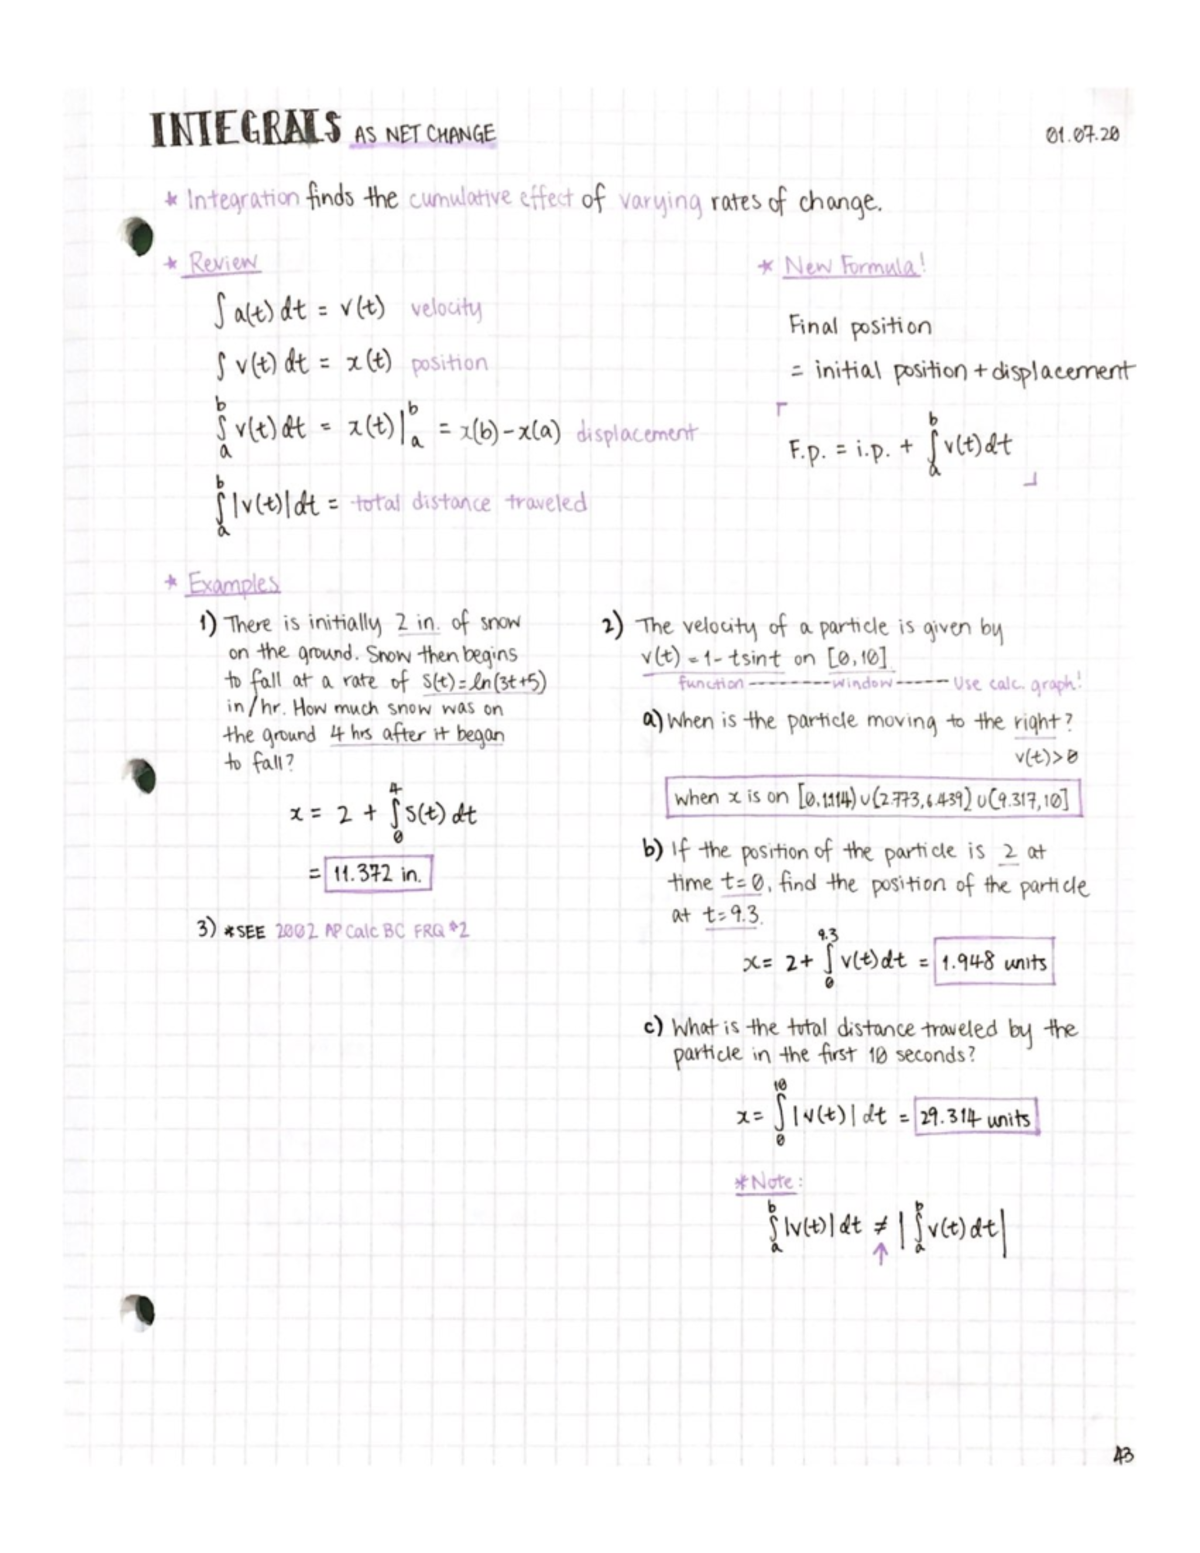 INTEGRALS AS NET CHANGE 01.07.20
* Integration finds the cumulative effect of varying rates of change.
* Review
∫ a(t) dt = v(t) velocity
∫ v(t) dt = x(t) position
∫_a^b v(t) dt = x(t)|_a^b = x(b)-x(a) displacement
∫_a^b |v(t)| dt = total distance traveled
* New Formula!
Final position
= initial position + displacement
F.p. = i.p. + ∫_a^b v(t) dt
* Examples
1) There is initially 2 in. of snow
on the ground. Snow then begins
to fall at a rate of S(t)=ln(3t+5)
in/hr. How much snow was on
the ground 4 hrs after it began
to fall?
x = 2 + ∫_0^4 S(t) dt
= 11.372 in.
3) *SEE 2002 AP Calc BC FRQ #2
2) The velocity of a particle is given by
v(t) = 1- tsint on [0,10]
function --------- window ------ Use calc. graph!
a) When is the particle moving to the right?
v(t)>0
when x is on [0,1.114)∪(2.773,6.439)∪(9.317,10]
b) If the position of the particle is 2 at
time t=0, find the position of the particle
at t=9.3.
x = 2+ ∫_0^9.3 v(t) dt = 1.948 units
c) What is the total distance traveled by the
particle in the first 10 seconds?
x = ∫_0^10 |v(t)| dt = 29.314 units
*Note:
∫_a^b |v(t)| dt ≠ |∫_a^b v(t) dt|
↑
43